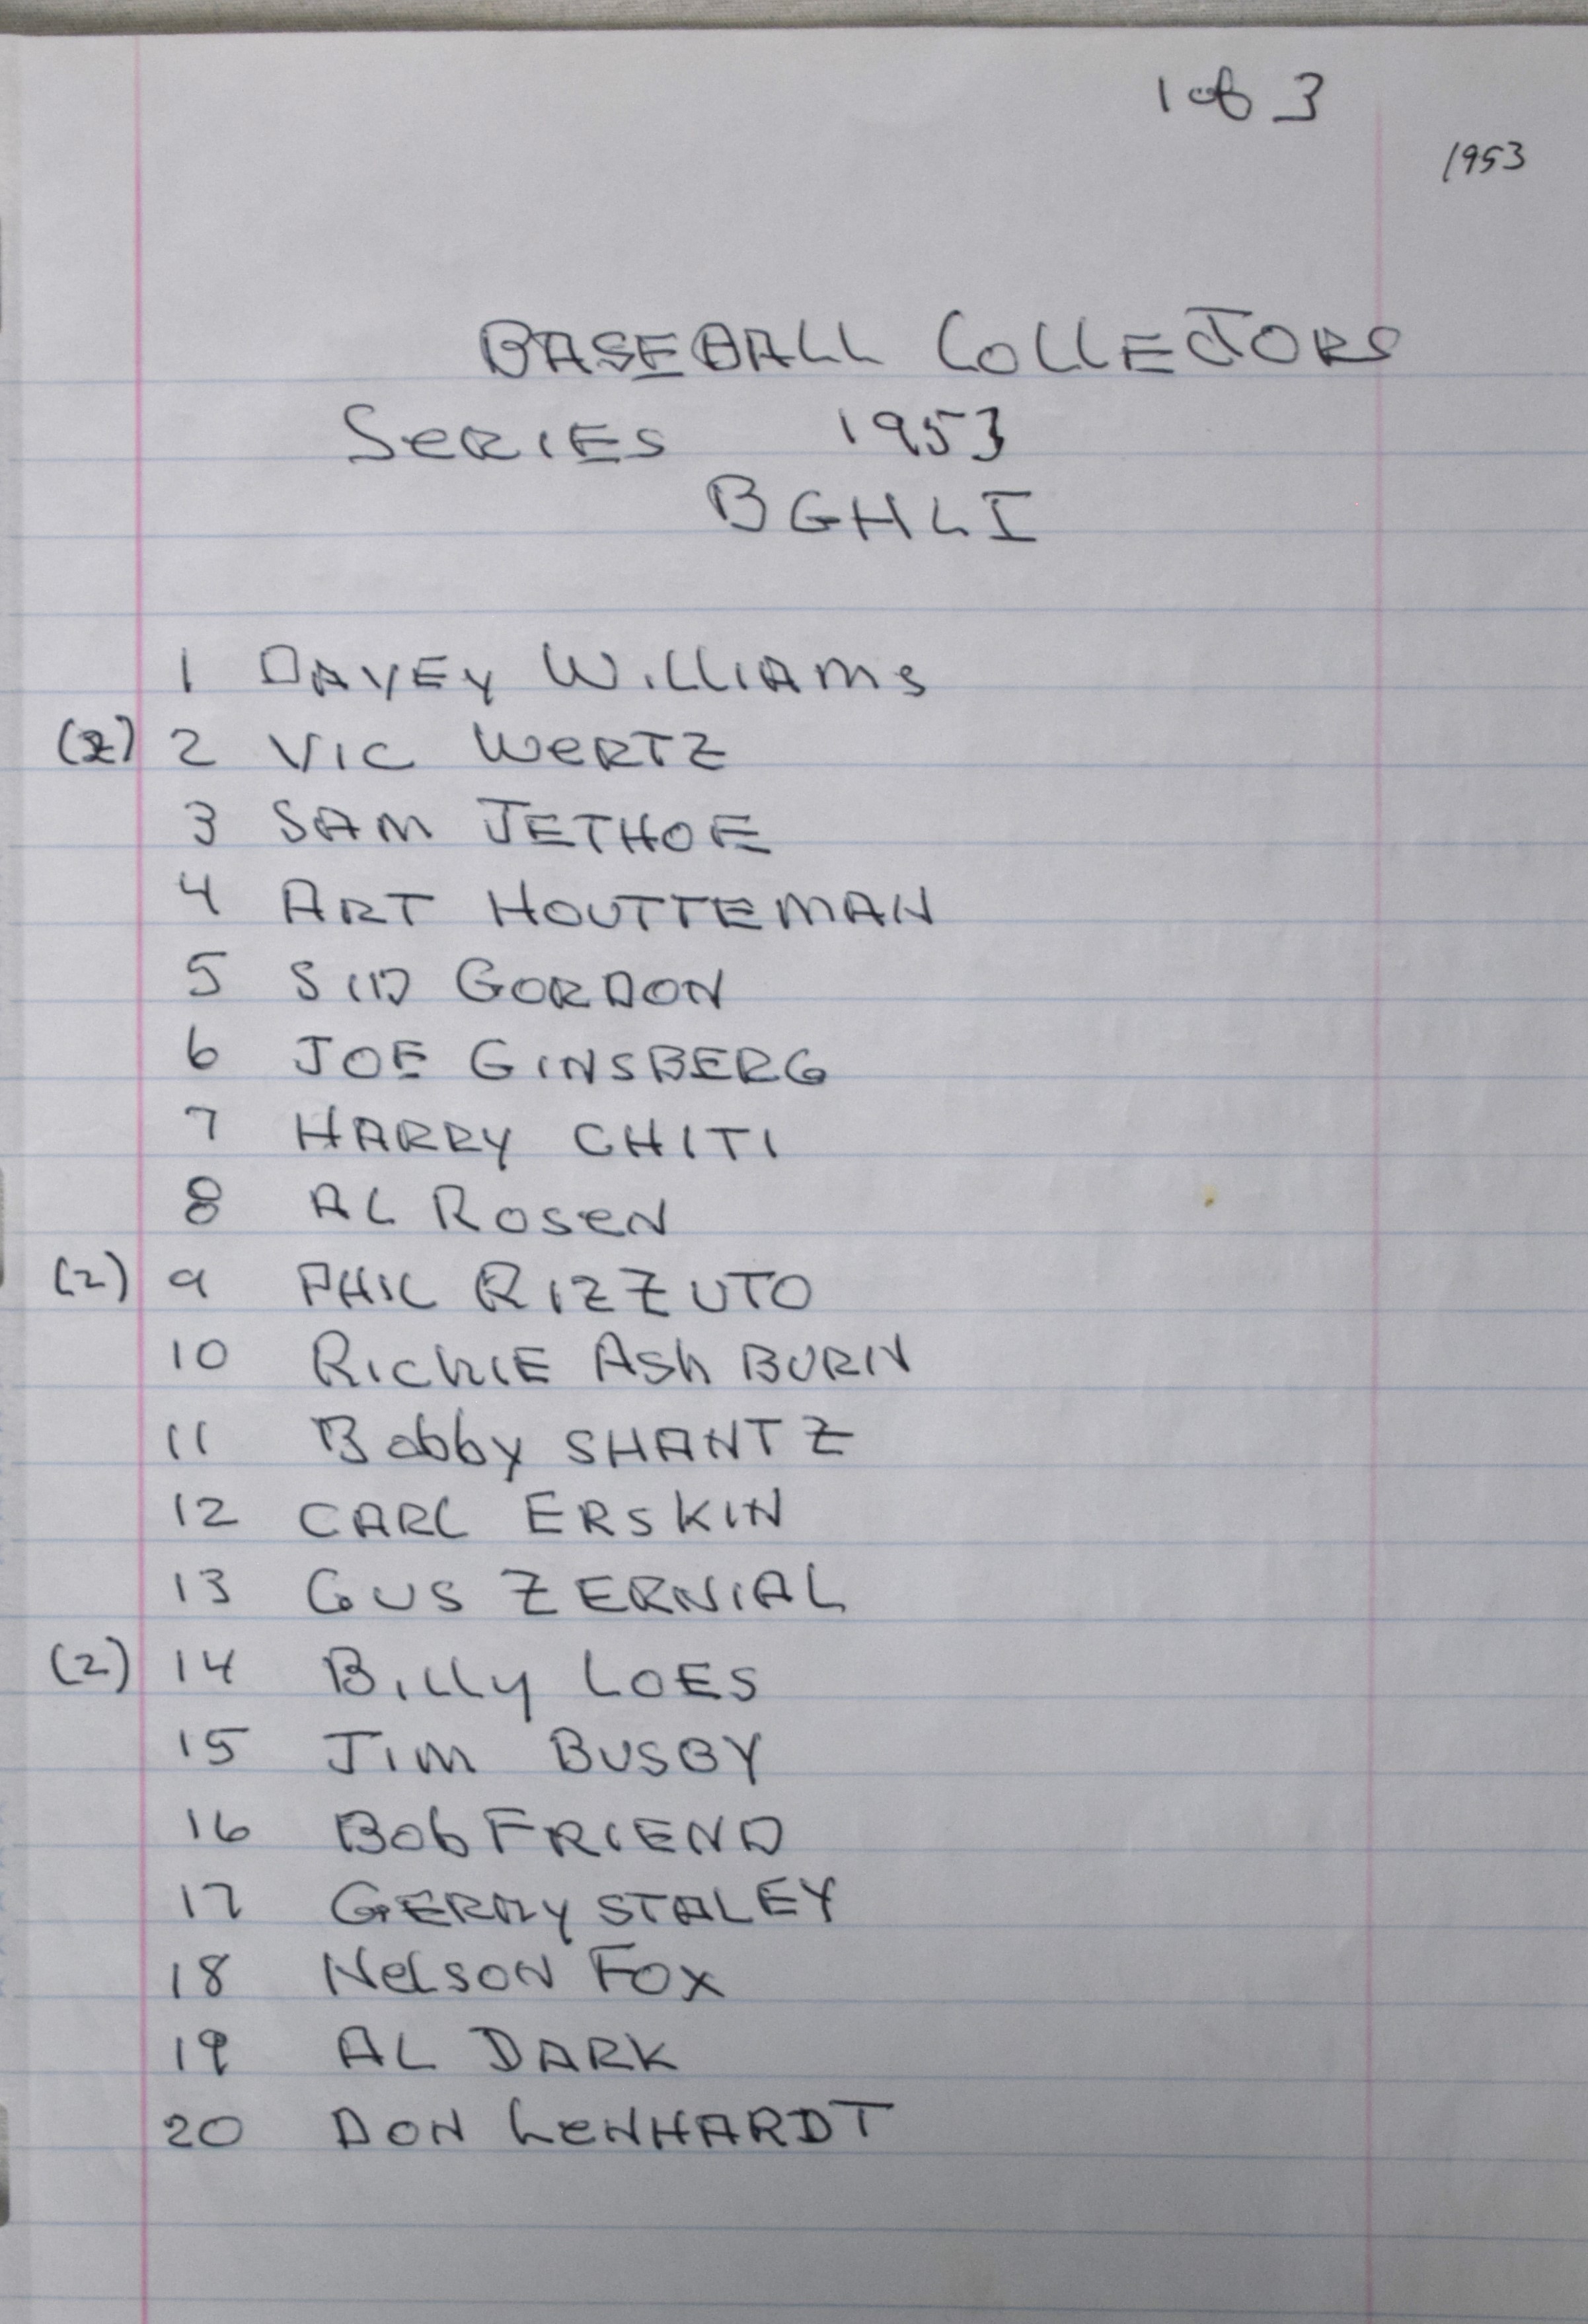 1 of 3
1953
BASEBALL COLLECTORS
SERIES 1953
BGHLI
1 DAVEY WILLIAMS
(2) 2 VIC WERTZ
3 SAM JETHOE
4 ART HOUTTEMAN
5 SID GORDON
6 JOE GINSBERG
7 HARRY CHITI
8 AL ROSEN
(2) 9 PHIL RIZZUTO
10 RICHIE ASHBURN
11 Bobby SHANTZ
12 CARL ERSKIN
13 GUS ZERNIAL
(2) 14 BILLY LOES
15 JIM BUSBY
16 Bob FRIEND
17 GERRY STALEY
18 NELSON FOX
19 AL DARK
20 DON LENHARDT